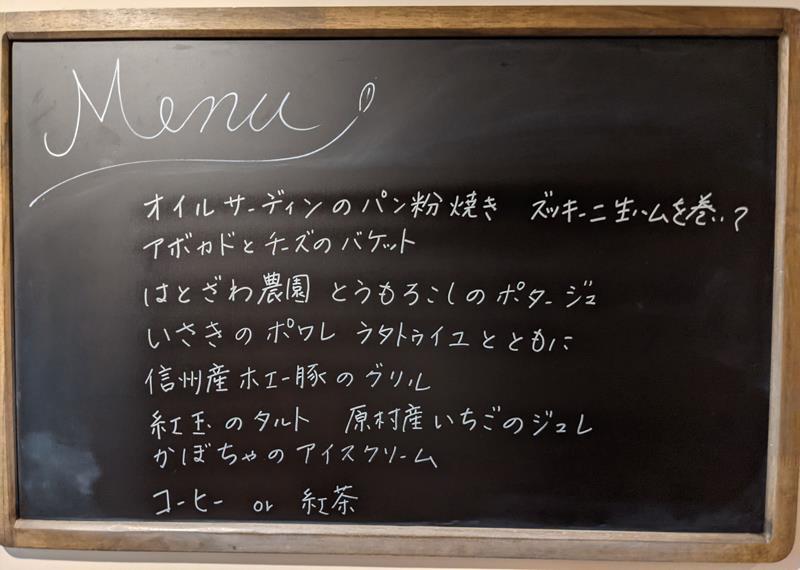 Menu
オイルサーディンのパン粉焼き ズッキーニ生ハムを巻いて
アボカドとチーズのバケット
はとざわ農園 とうもろこしのポタージュ
いさきのポワレ ラタトゥイユとともに
信州産ホエー豚のグリル
紅玉のタルト 原村産いちごのジュレ
かぼちゃのアイスクリーム
コーヒー or 紅茶